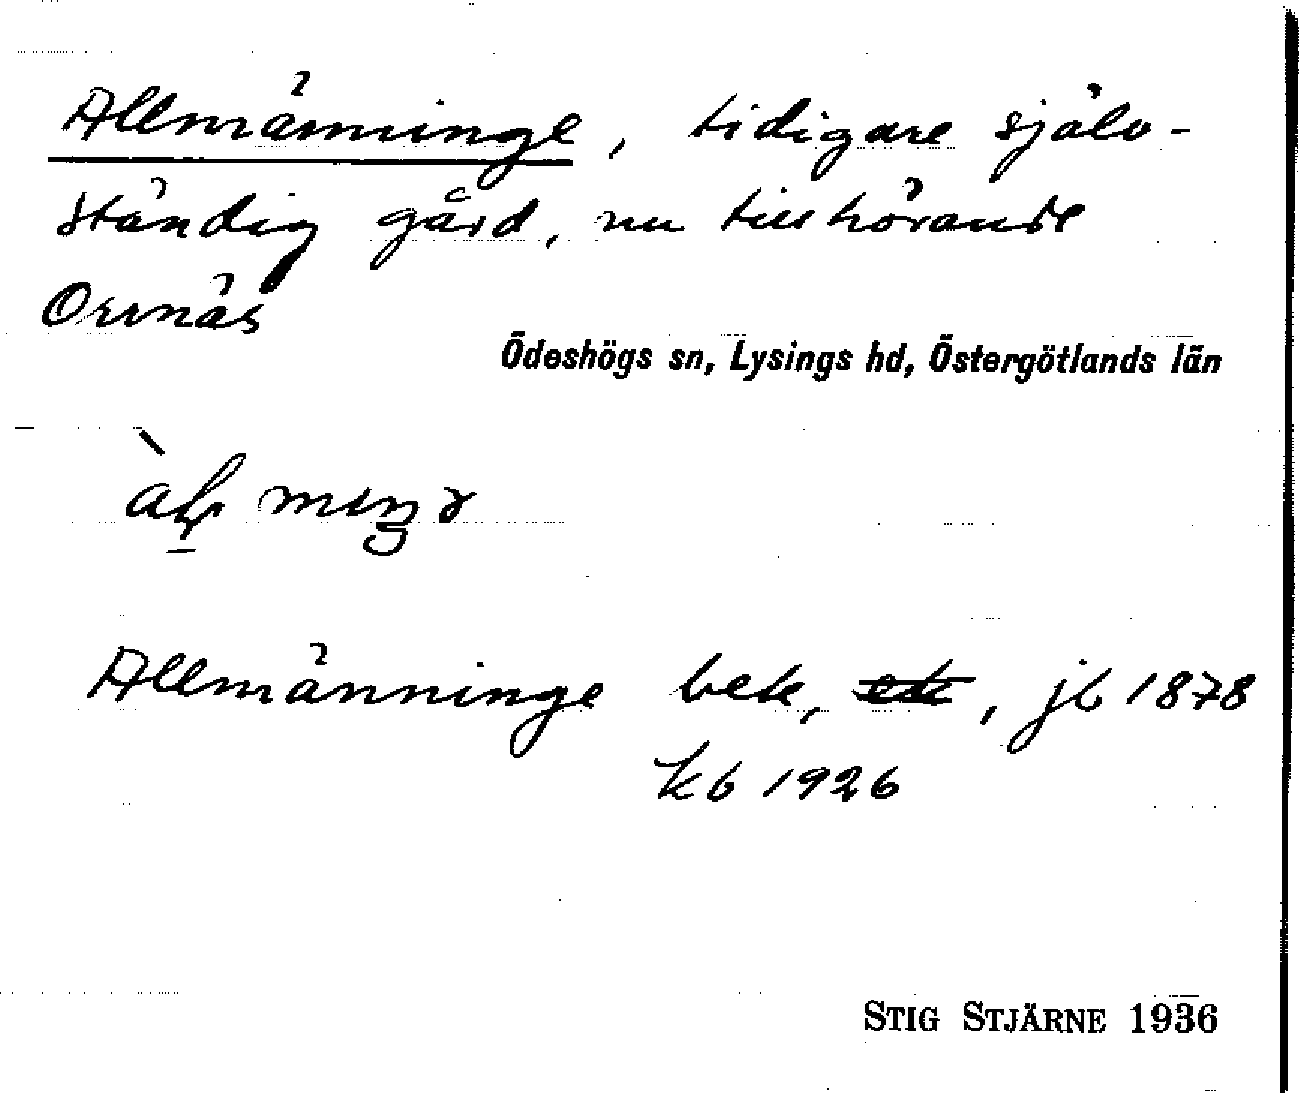 Allmänninge, tidigare själv-
ständig gård, nu tillhörande
Orrnäs
Ödeshögs sn, Lysings hd, Östergötlands län
Allmänninge bek, ek, jb 1878
kb 1926
STIG STJÄRNE 1936